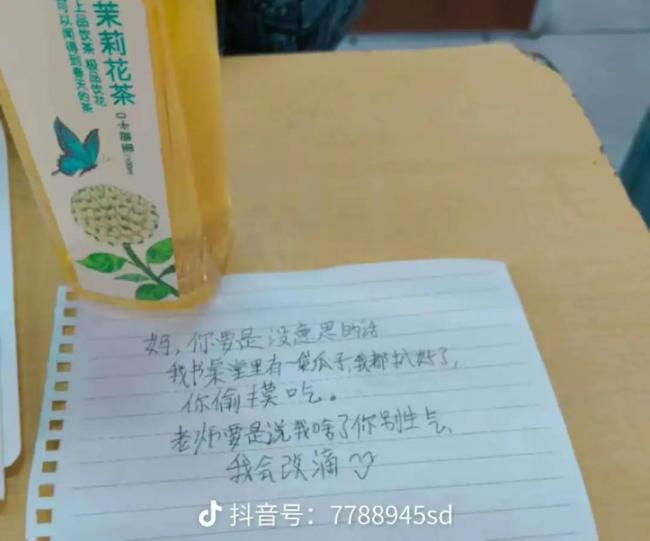 茉莉花茶
上品饮茶 极品饮花
可以闻得到春天的茶
0卡路里
妈，你要是没意思的话
我书桌堂里有一袋瓜子，我都扒好了，
你偷摸吃。
老师要是说我啥了你别生气、
我会改滴
抖音号：7788945sd